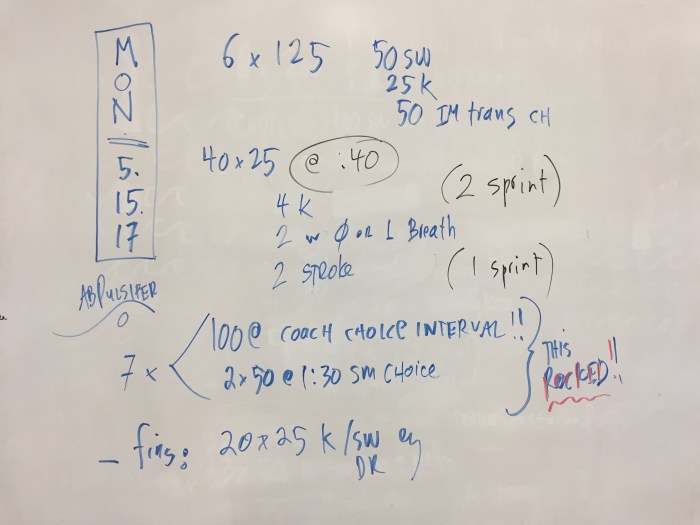 MON
5.
15.
17
6 x 125 50 SW
25 K
50 IM trans CH
40 x 25 @ :40
4 K (2 sprint)
2 w Ø or 1 Breath
2 STROKE (1 sprint)
AB PULSIFER
100 @ COACH CHOICE INTERVAL!!
7 x
2 x 50 @ 1:30 SM CHOICE
THIS
ROCKED!!
- fins: 20 x 25 K/SW
DR